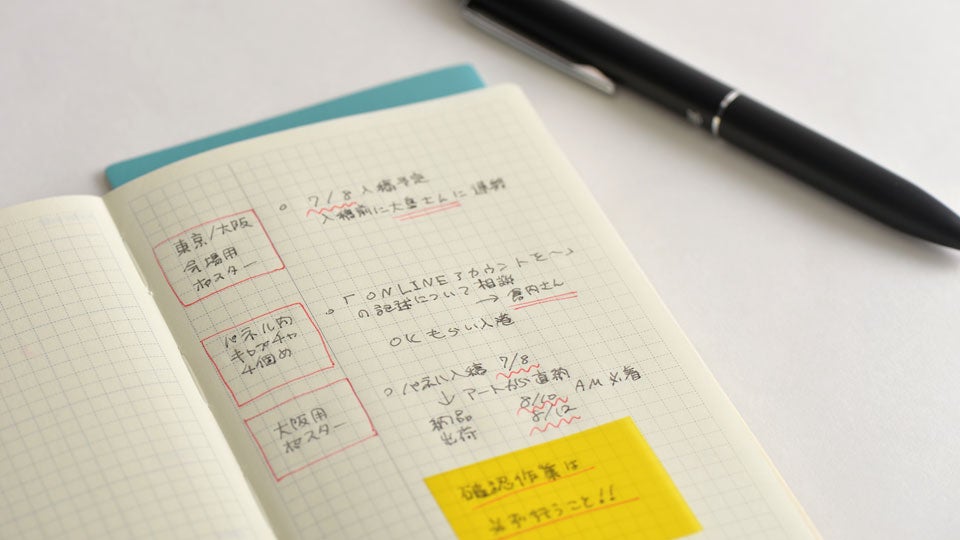 東京/大阪
会場用
ポスター
○ 7/8 入稿予定
入稿前に大島さんに連絡
パネル内
キャプチャ
4個め
○ 「ONLINEアカウントを〜」
の記述について相談
→ 宮内さん
OKもらい入稿
大阪用
ポスター
○ パネル入稿 7/8
↓ アートから直納
納品 8/10 AM必着
出荷 8/12
確認作業は
必ず行うこと!!